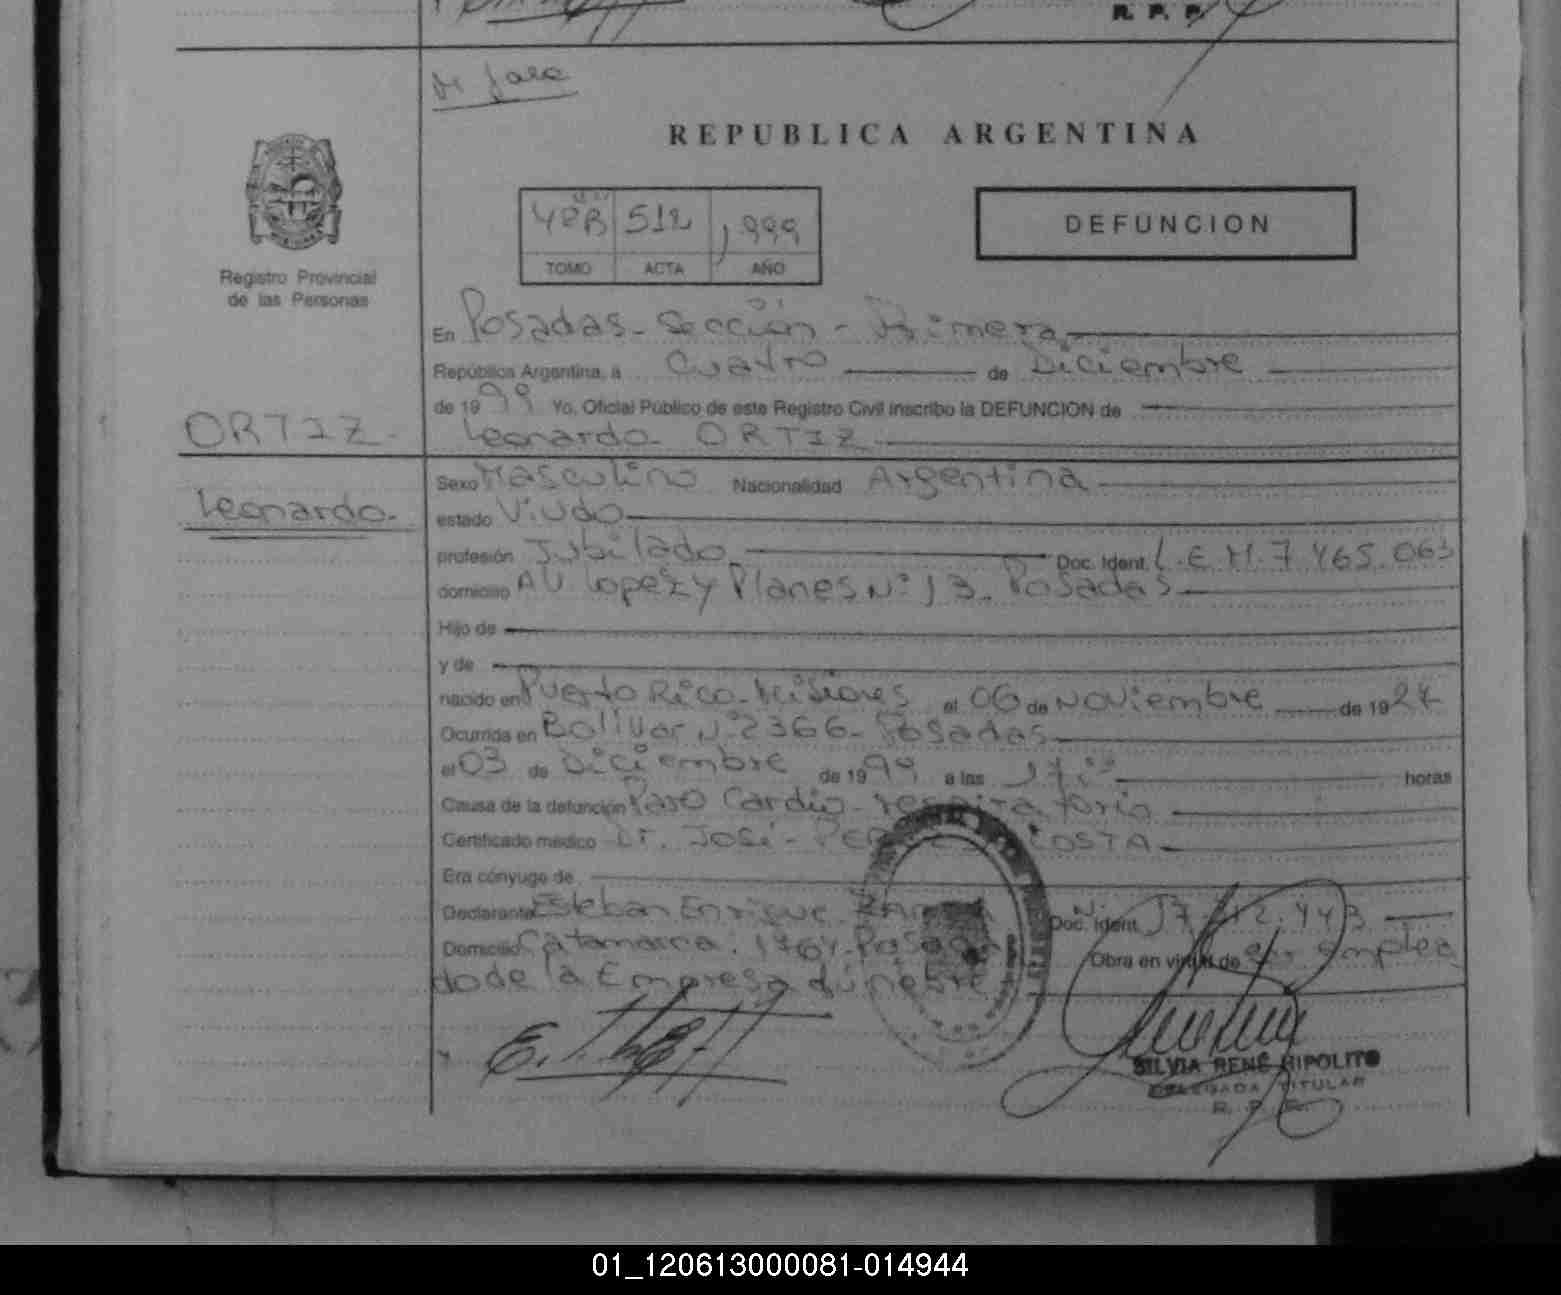 R. P. P.
REPUBLICA ARGENTINA
512 1999
TOMO ACTA AÑO
DEFUNCION
Registro Provincial
de las Personas
En Posadas - Sección - Primera
República Argentina, a Cuatro de Diciembre
de 1999 Yo, Oficial Público de este Registro Civil inscribo la DEFUNCION de
ORTIZ - Leonardo - ORTIZ
Leonardo -
Sexo Masculino Nacionalidad Argentina
estado Viudo
profesión Jubilado Doc. Ident. L.E.M. 7.465.063
domicilio AV. Lopez y Planes N° 13 - Posadas
Hijo de
y de
nacido en Puerto Rico - Misiones el 06 de Noviembre de 1924
Ocurrida en Bolívar N° 2366 - Posadas
el 03 de Diciembre de 1999 a las horas
Causa de la defunción Paro Cardio - respiratorio
Certificado médico Dr. José - COSTA
Era cónyuge de
Declarante Esteban Enrique Doc. Ident.
Domicilio Catamarca 1764 - Posadas Obra en virtud de ser emplea
do de la Empresa fúnebre
SILVIA RENÉ HIPOLITO
DELEGADA TITULAR
R. P. P.
01_120613000081-014944